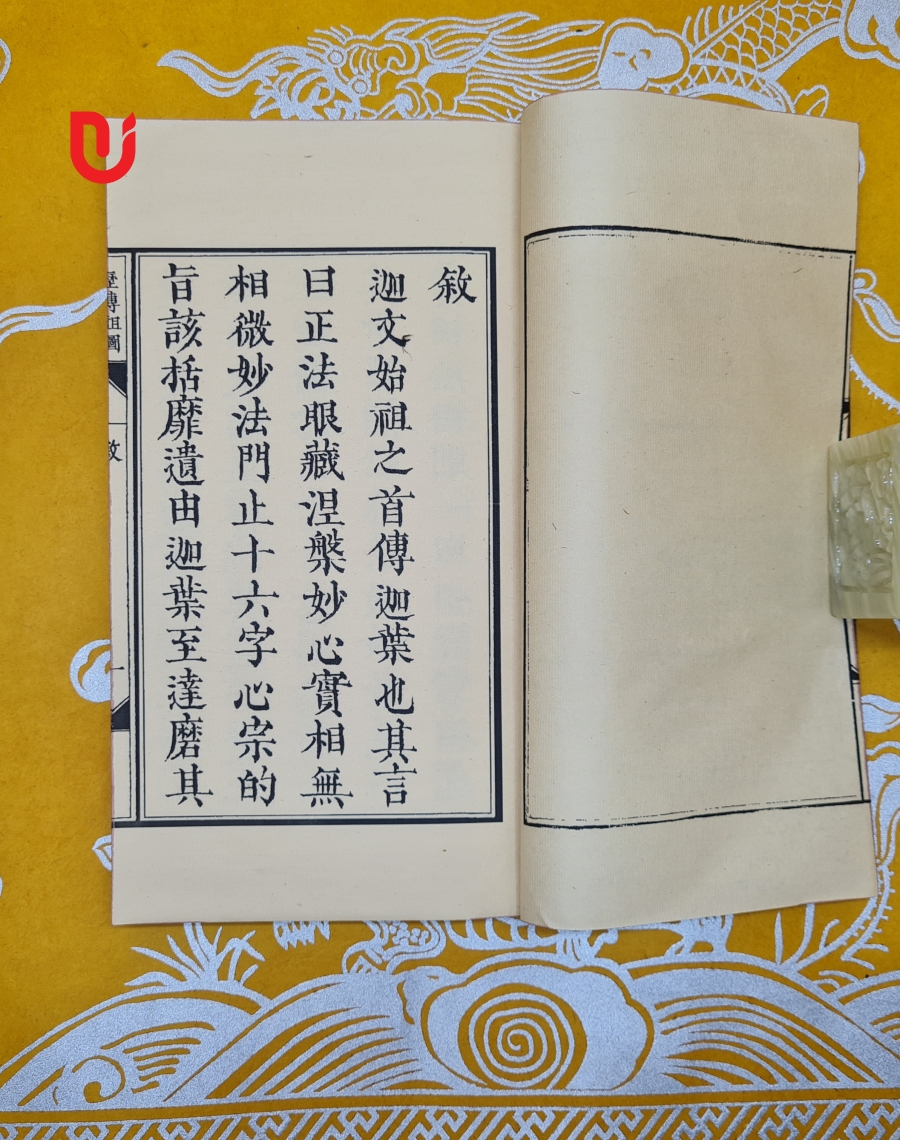 敘
迦文始祖之首傳迦葉也其言
曰正法眼藏涅槃妙心實相無
相微妙法門止十六字心宗的
旨該括靡遺由迦葉至達磨其